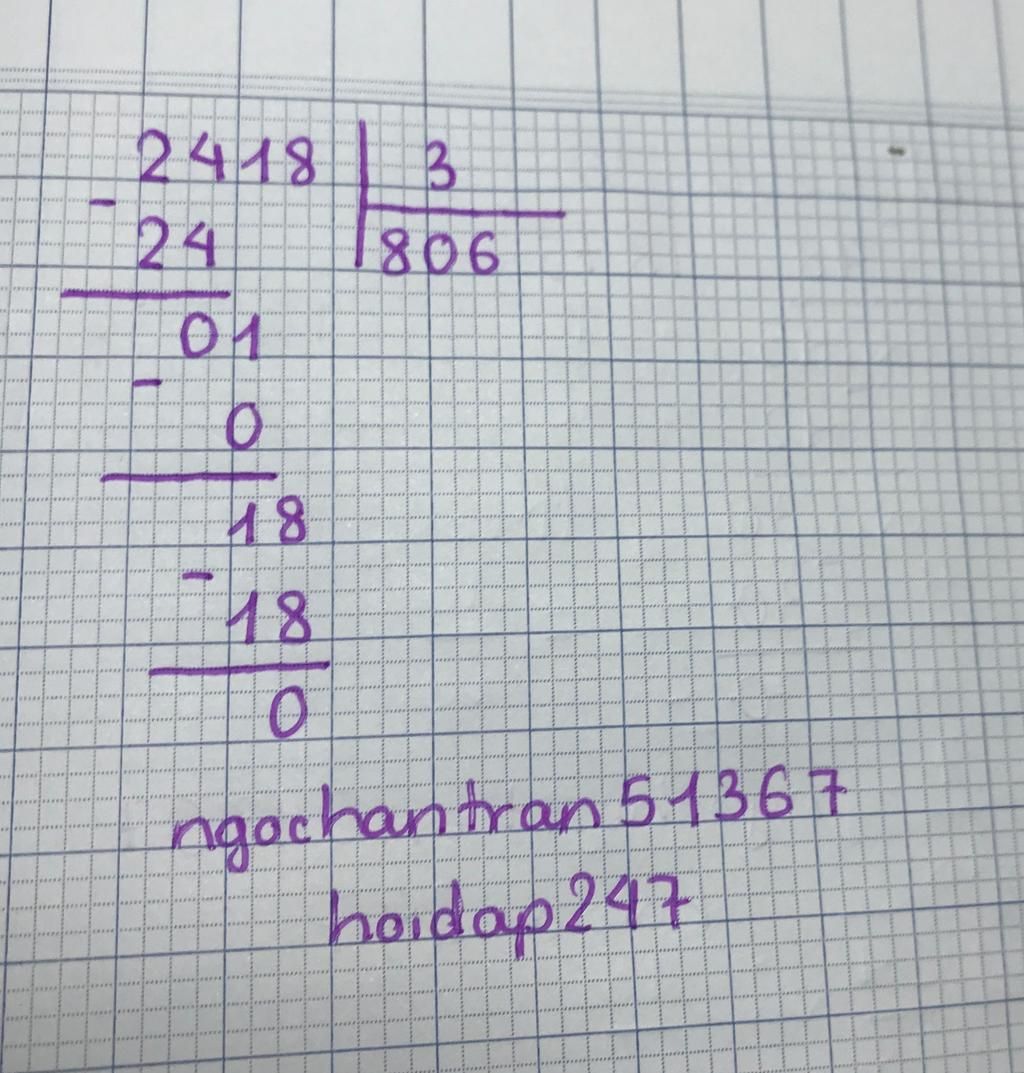 2418 | 3
-
24 | 806
01
-
0
18
-
18
0
ngochantran51367
hoidap247